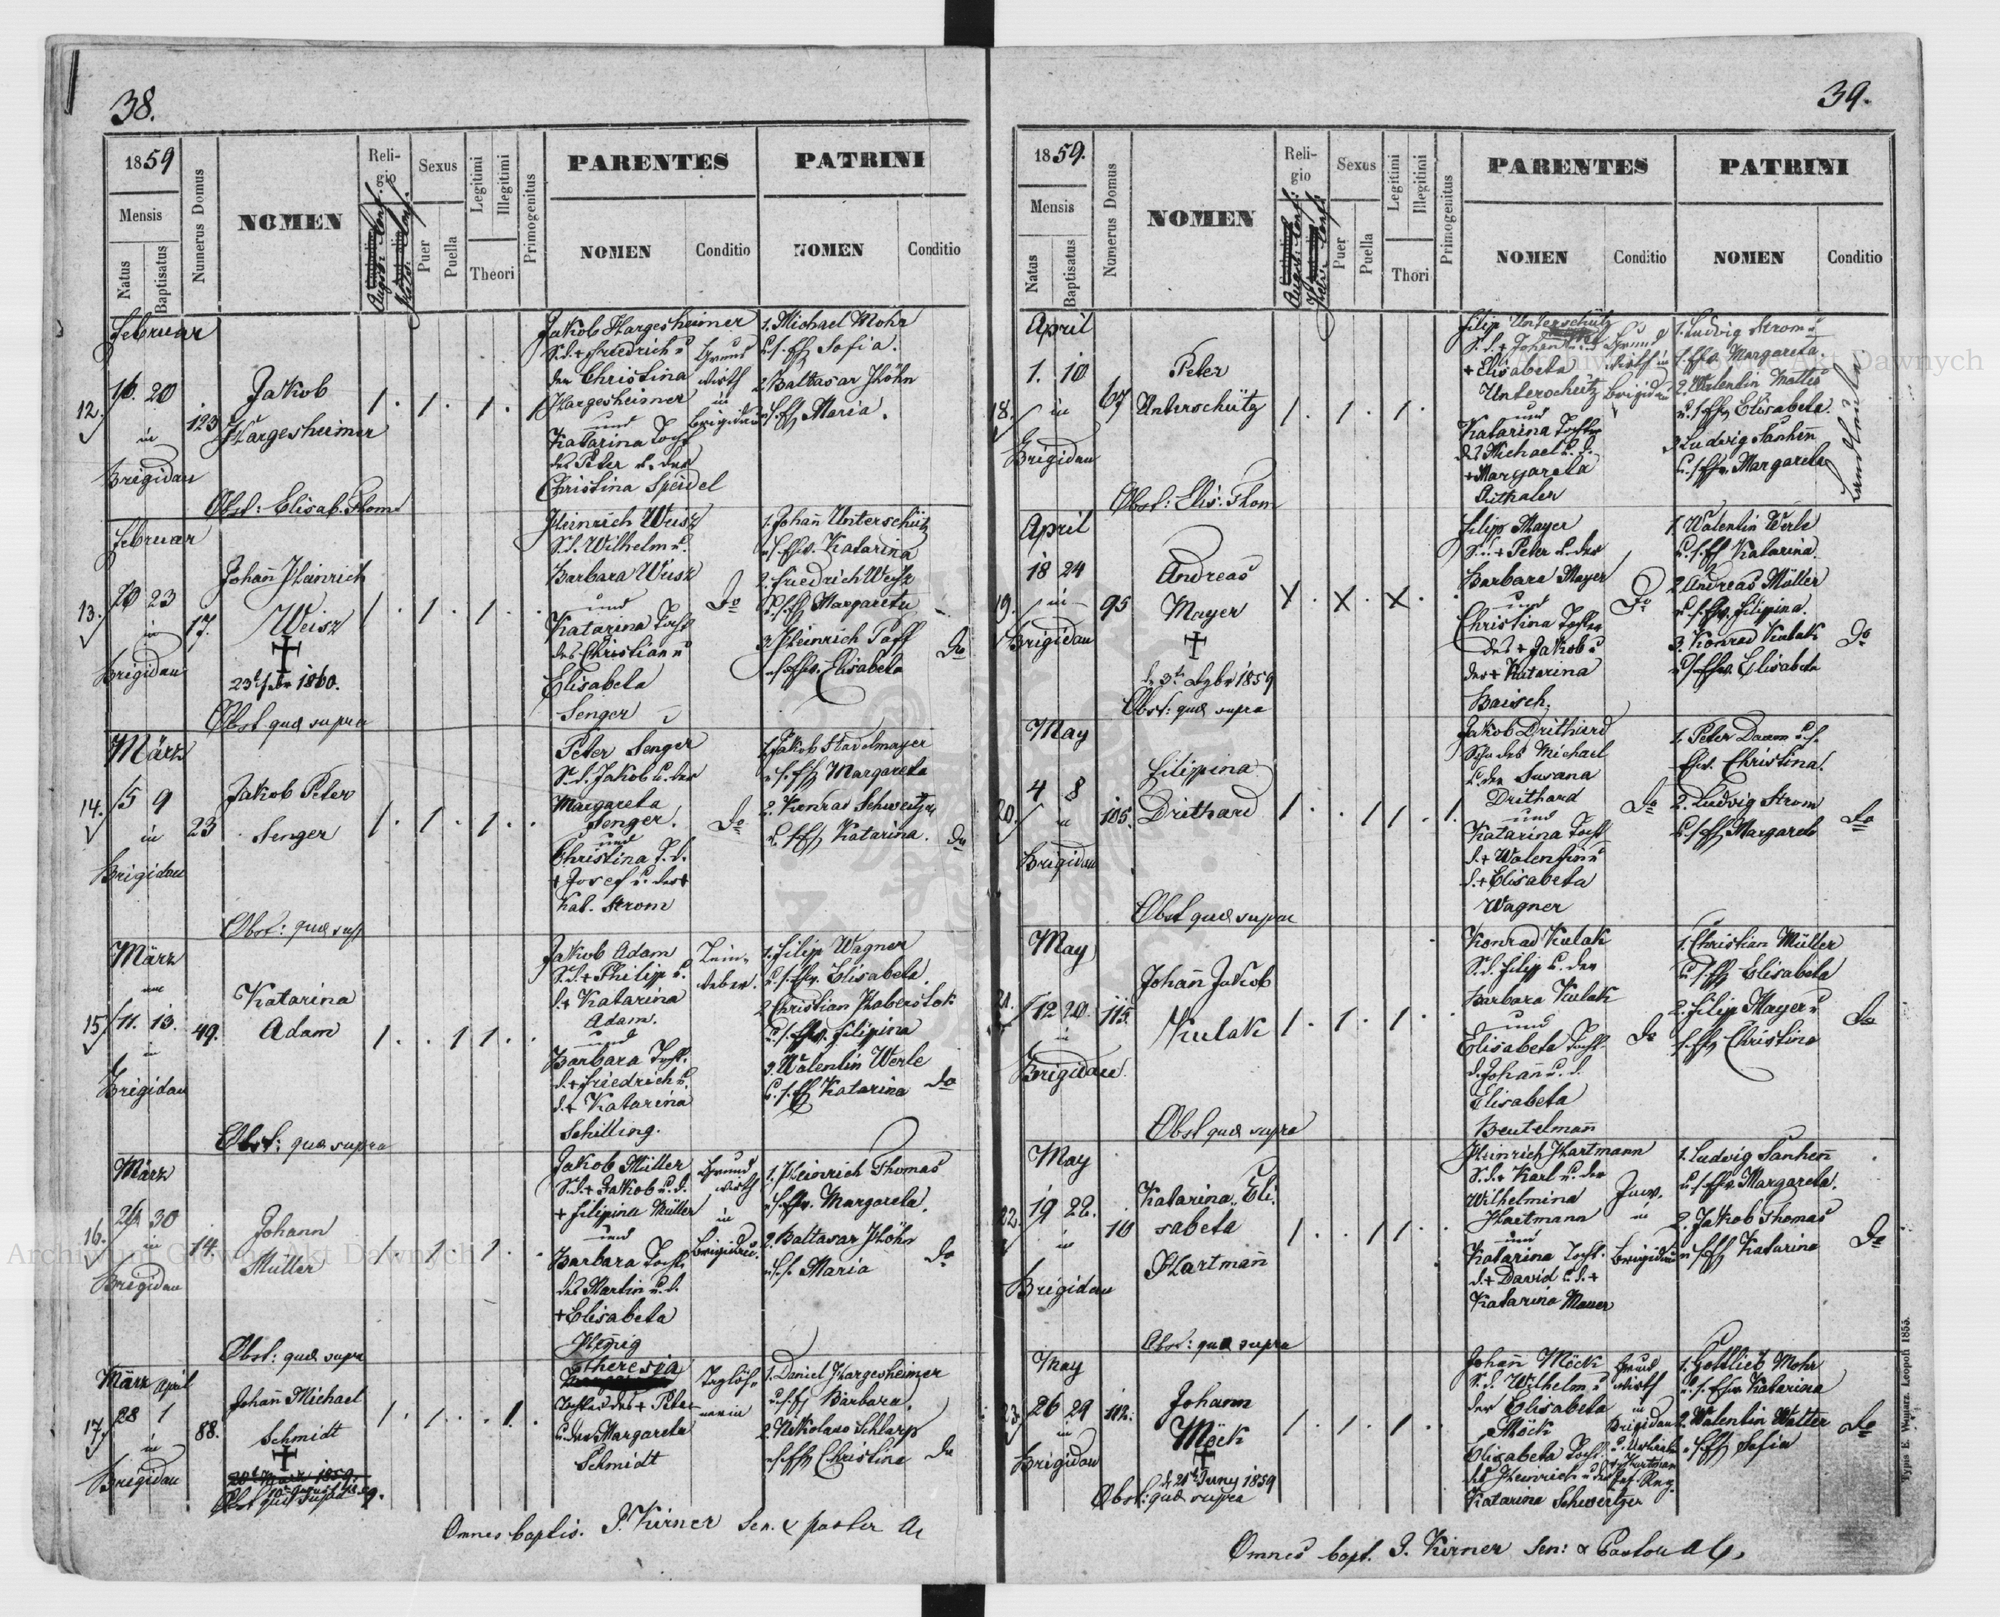 38.
1859
Mensis
Natus
Baptisatus
Numerus Domus
NOMEN
Religio
Sexus
Puer
Puella
Legitimi
Illegitimi
Theori
Primogenitus
PARENTES
NOMEN
Conditio
PATRINI
NOMEN
Conditio
Februar
12. 16. 20
in
Brigidau
123
Jakob
Hargesheimer
Obst: Elisab. Thom
1. 1. 1. 1
Jakob Hargesheimer
S. d. + Friedrich u
der Christina
Hargesheimer
und
Katarina Tocht
des Peter u. der
Christina Speidel
Grund
wirth
in
Brigidau
1. Michael Mohr
u. s. Eff Sofia.
2. Baltasar Höhn
u. s. Eff Maria.
Februar
13. 20 23
in
Brigidau
17.
Johañ Heinrich
Weisz
23t Febr 1860.
Obst quæ supra
1. 1. 1.
Heinrich Weisz
S. d. Wilhelm u.
Barbara Weisz
und
Katarina Tocht
des Christian u
Elisabeta
Senger
Do
1. Johañ Unterschütz
u. s. Efw. Katarina
2. Friedrich Weisz
u. s. Eff Margareta
3. Heinrich Paff
u. s. Effw. Elisabeta
Do
März
14. 5 9
in
Brigidau
23
Jakob Peter
Senger
Obst: quæ sup
1. 1. 1.
Peter Senger
S. d. Jakob u. der
Margareta
Senger.
und
Christina T. d.
+ Josef u. der +
Kat. Strom
Do
1. Jakob Stadelmayer
u. s. Eff Margareta
2. Konrad Schweitzer
u. s. Eff Katarina.
Do
März
15 11. 13.
in
Brigidau
49.
Katarina
Adam
Obst: quæ supra
1. . 1 1.
Jakob Adam
S. d. + Philipp u.
d. + Katarina
Adam.
und
Barbara Tocht.
d. + Friedrich u.
d. + Katarina
Schilling.
Lein-
weber.
1. Filip Wagner
u. s. Efw. Elisabeta
2. Christian Haberstok
u. s. Effw. Filipina
3. Walentin Werle
u. s. Eff Katarina
Do
März
16. 24 30
in
Brigidau
14.
Johann
Müller
Obst: quæ supra
1 1 1.
Jakob Müller
S. d. + Jakob u. d.
+ Filipina Müller
und
Barbara Tocht.
des Martin u. d.
+ Elisabeta
Heñig
Grund
wirth
in
Brigidau
1. Heinrich Thomas
u. s. Effw. Margareta.
2. Baltasar Höhn
u. s. f. Maria
Do
März April
17. 28 1
in
Brigidau
88.
Johañ Michael
Schmidt
Obst quæ supra
1. 1. . 1.
Theresia
Tochter des + Peter
u. der Margareta
Schmidt
Taglöh-
nerin
1. Daniel Hargesheimer
u. s. Eff Barbara.
2. Nikolaus Schlarp
u. s. Eff Christina
Do
Omnes baptis. J. Kirner Sen. & pastor Ac
39.
1859.
Mensis
Natus
Baptisatus
Numerus Domus
NOMEN
Religio
Sexus
Puer
Puella
Legitimi
Illegitimi
Thori
Primogenitus
PARENTES
NOMEN
Conditio
PATRINI
NOMEN
Conditio
April
18. 1. 10
in
Brigidau
67
Peter
Unterschütz
Obst: Elis. Thom
1. 1. 1.
Filip Unterschütz
S. d. + Johann u. d.
+ Elisabeta
Unterschütz
und
Katarina Tochter
des Michael u. d.
+ Margareta
Authaler
Grund
wirth in
Brigidau
1. Ludwig Strom u
s. Effw. Margareta
2. Walentin Mattes
u. s. Eff Elisabeta.
3. Ludwig Sanheñ
u. s. Effw. Margareta
Landleute
April
19. 18 24
in
Brigidau
95
Andreas
Mayer
Obst: quæ supra
X. X. X.
Filip Mayer
S. d. + Peter u. der
Barbara Mayer
und
Christina Tochter
des + Jakob u
der + Katarina
Baisch.
Do
1. Walentin Werle
u. s. Eff Katarina.
2. Andreas Müller
u. s. Efw. Filipina.
3. Konrad Kulak
u. s. Effw. Elisabeta
Do
May
20. 4 8
in
Brigidau
105.
Filippina
Drithard
Obst quæ supra
1. . 1 1. 1.
Jakob Drithard
Sohn des Michael
u. der Susana
Drithard
und
Katarina Tocht
d. + Walentin u
d. + Elisabeta
Wagner
Do
1. Peter Daum u. s.
Efw. Christina.
2. Ludwig Strom
u. s. Eff Margaret
Do
May
21. 12 20.
in
Brigidau
115.
Johañ Jakob
Kulak
Obst quæ supra
1. 1. 1.
Konrad Kulak
S. d. Filip u. der
Barbara Kulak
und
Elisabeta Tocht.
d. Johañ u. d.
Elisabeta
Beutelmañ
Do
1. Christian Müller
u. s. Eff Elisabeta
2. Filip Mayer u
s. Eff Christina
Do
May
22. 19 22.
in
Brigidau
10
Katarina Eli-
sabeta
Hartmañ
Obst: quæ supra
1. . 1 1.
Heinrich Hartmann
S. d. + Karl u. der
Wilhelmina
Hartmann
und
Katarina Tocht.
d. + David u. d. +
Katarina Mauer
Inw.
in
Brigidau
1. Ludwig Sanheñ
u. s. Effw. Margareta.
2. Jakob Thomas
u. s. Eff Katarina
Do
May
23. 26 29
in
Brigidau
112.
Johann
Möck
d. 21t Juny 1859
Obst: quæ supra
1. 1. 1.
Johañ Möck
S. d. Wilhelm u
der Elisabeta
Möck
Elisabeta Tocht.
des Heinrich u. der
Katarina Schweitzer
Grund
wirth
in
Brigidau
1. Gottlieb Mohr
u. s. Efw. Katarina
2. Walentin Walter
u. s. Eff Sofia
Do
Omnes bapt. J. Kirner Sen: & Pastor A C,
Typis E. Winiarz Leopoli 1855.
Archiwum Główne Akt Dawnych